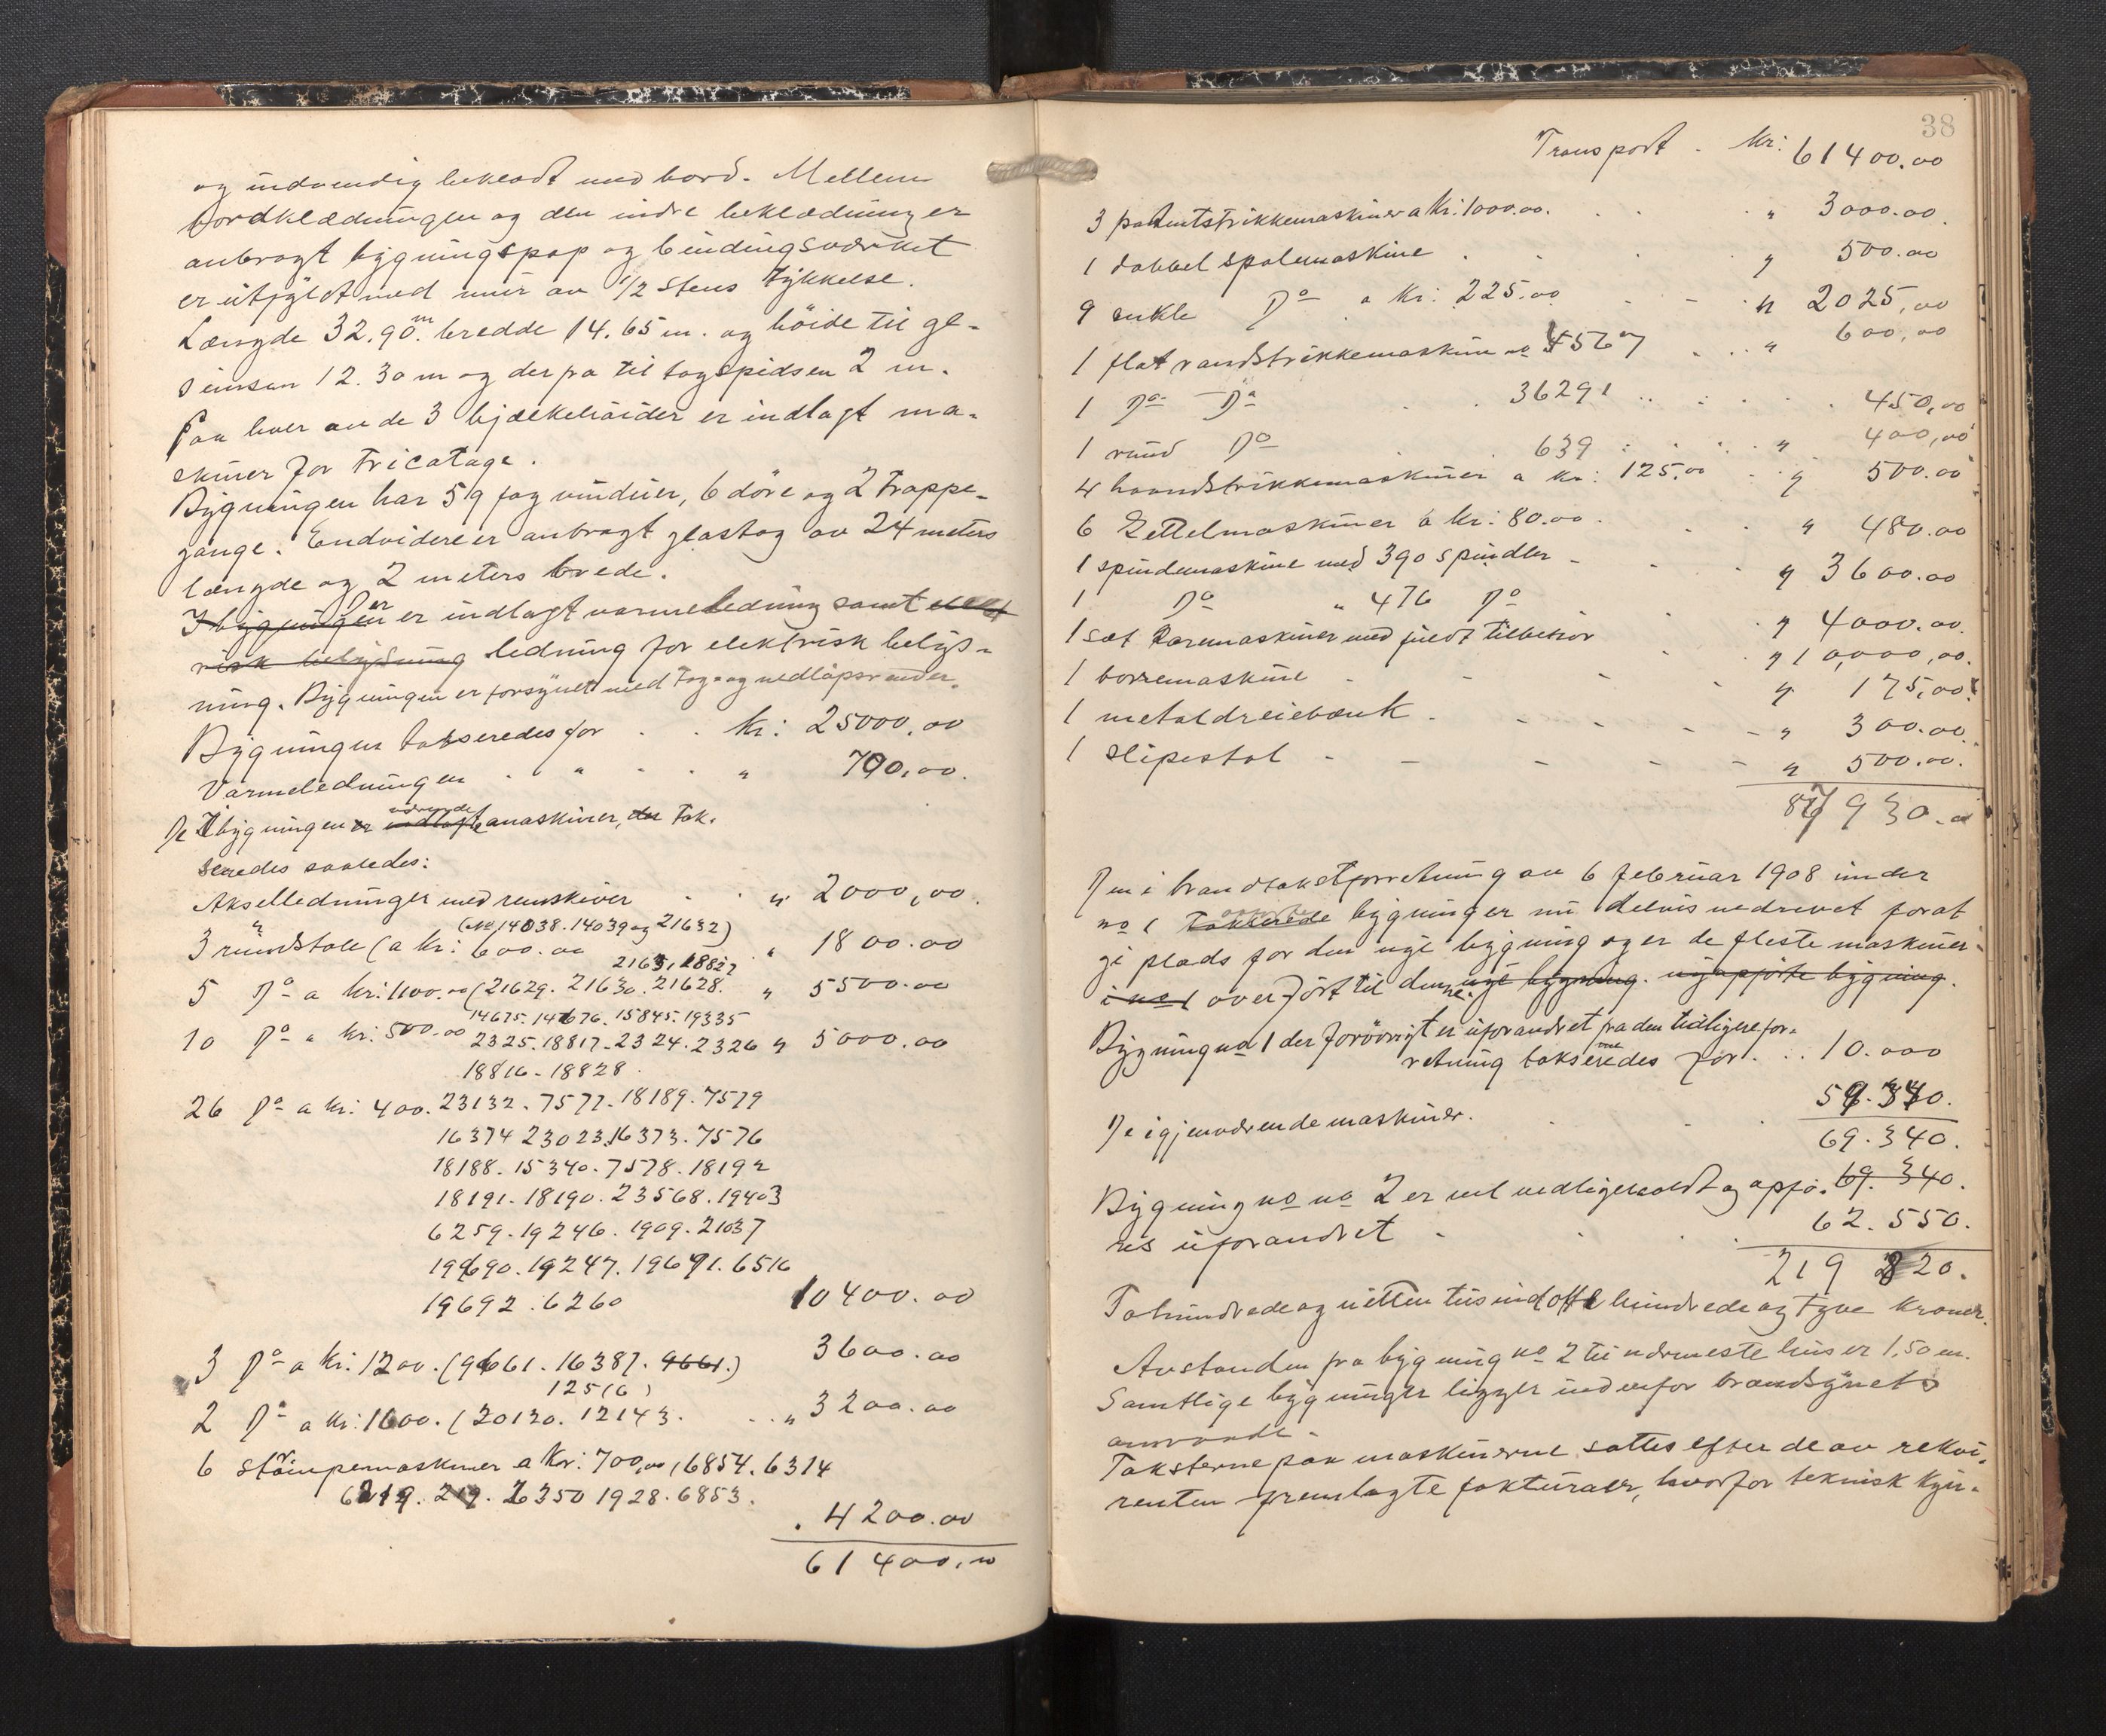 og indvendig beklædt med bord. Mellem
bordklædningen og den indre beklædning er
anbragt bygningspap og bindingsværket
er utfyldt med mur av 1/2 stens tykkelse.
Længde 32.90 m. bredde 14.65 m. og höide til ge-
simsen 12.30 m og derfra til tagspidsen 2 m.
Paa hver av de 3 bjælkehöider er indlagt ma-
skiner for Tricotage.
Bygningen har 59 fag vinduer, 6 döre og 2 Trappe-
gange. Endvidere er anbragt glastag av 24 meters
længde og 2 meters brede.
I bygningen Der er indlagt varmeledning samt elekt
risk belysning ledning for elektrisk belys-
ning. Bygningen er forsynet med tag- og nedlöpsrender.
Bygningen takseredes for . . kr: 25000,00
Varmeledningen . " . . " 700,00.
De I bygningen er indlagte værende maskiner, der tak-
seredes saaledes:
Akselledninger med remskiver . . " 2000,00.
(No 14038. 14039 og 21632)
3 rundstole (a kr: 600.00 . " 1800.00
21631, 18827
5 Do a kr: 1100.00 (21629. 21630. 21628. " 5500.00
14675. 14676. 15845. 19335
10 Do a kr: 500.00 2325. 18817. 2324. 2326 " 5000.00
18816 - 18828.
26 Do a kr: 400. 23132. 7577. 18189. 7579
16374 23023. 16373. 7576
18188. 15340. 7578. 18192
18191. 18190. 23568. 19403
6259. 19246. 1909. 21037
19690. 19247. 19691. 6516
19692. 6260 10400.00
3 Do a kr: 1200. (9661. 16387. 9661.) 3600.00
125(6)
2 Do a kr: 1600. (20120. 12143. . . " 3200.00
6 strömpemaskiner a kr: 700,00 (6854. 6314
6219. 219. 6350 1928. 6853.
. 4200.00
61400,00
38
Transport . Kr: 61400.00
3 patentstrikkemaskiner a kr: 1000.00. . . " 3000.00.
1 dobbel spolemaskine . . . " 500.00
9 enkle Do a kr: 225.00 . - . " 2025,00
1 flat randstrikkemaskine no 45607 . . . " 600,00
1 Do Do . 36291 . . . . 450,00
1 rund Do . 639 . . . . " 400,00
4 haandstrikkemaskiner a kr: 125,00 . . " 500.00
6 Zettelmaskiner a kr: 80.00. . . " 480.00
1 spindemaskine med 390 spindler - . . " 3600.00
1 Do " 476 Do . " 4000.00.
1 sæt Karemaskiner med fuldt tilbehör . " 10,000,00.
1 borremaskine . - - . " 175,00
1 metaldreiebænk . - - - " 300.00.
1 slipestol - - - - - " 500.00.
87930.00
Den i brandtakstforretning av 6 februar 1908 under
no 1 takserede bygninger nu delvis nedrevet forat
gi plads for den nye bygning og er de fleste maskiner
i no 1 overfört til denne. nye bygning. nyopförte bygning.
Bygning no 1 der forövrigt er uforandret fra den tidligere for-
retning takseredes for . . . 10.000
De igjenværende maskiner. . . . 59.340.
69.340.
Bygning no no 2 er vel vedligeholdt og opfö- 69.340.
res uforandret . . . 62.550.
219 820.
Tohundrede og nitten tusind otte hundrede og tyve Kroner.
Avstanden fra bygning no 2 til nærmeste hus er 1,50 m.
Samtlige bygninger ligger indenfor brandsynets
omraade.
Taksterne paa maskinerne sattes efter de av rekvi-
renten fremlagte fakturaer, hvorfor teknisk kyn-